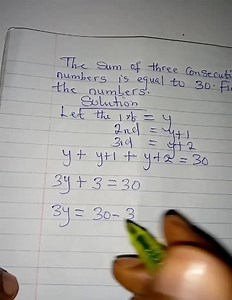 The sum of three consecuti
numbers is equal to 30. Fi
the numbers.
Solution
Let the 1st = y
2nd = y+1
3rd = y+2
y + y+1 + y+2 = 30
3y + 3 = 30
3y = 30 - 3